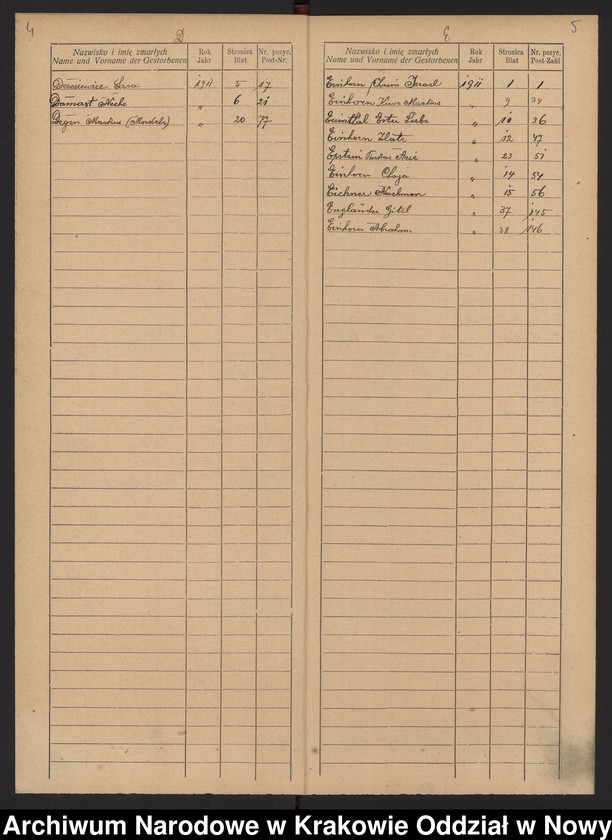 4
D
Nazwisko i imię zmarłych
Name und Vorname der Gestorbenen
Rok
Jahr
Stronica
Blat
Nr. pozyc.
Post-Nr.
Sara 1911 5 17
Damast „ 6 21
Degen Markus (Mordche) „ 20 77
5
E
Nazwisko i imię zmarłych
Name und Vorname der Gestorbenen
Rok
Jahr
Stronica
Blat
Nr. pozyc.
Post-Zahl
Einhorn Chaim Israel 1911 1 1
Einhorn Markus „ 9 34
Ester Liebe „ 10 36
Einhorn Zlate „ 12 47
Epstein „ 23 51
Einhorn Chaja „ 14 54
Eichner Nachman „ 15 56
Engländer Gitel „ 37 145
Einhorn Abraham „ 38 146
Archiwum Narodowe w Krakowie Oddział w Nowy